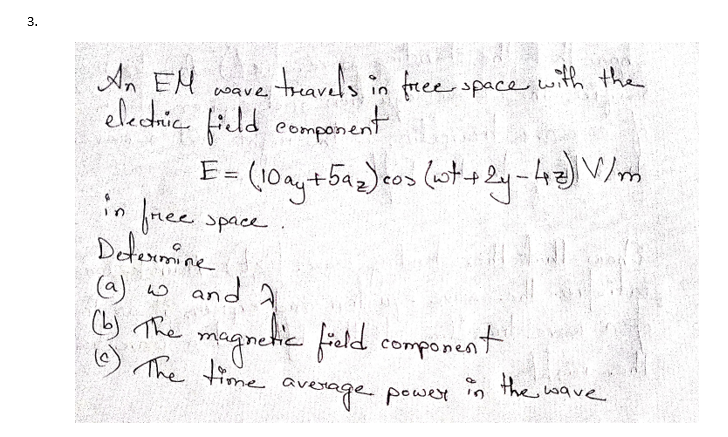 3.
An EM wave travels in free space with the
electric field component
E = (10ay+5az) cos (wt+2y-4z) V/m
in free space.
Determine
(a) ω and λ
(b) The magnetic field component
(c) The time average power in the wave